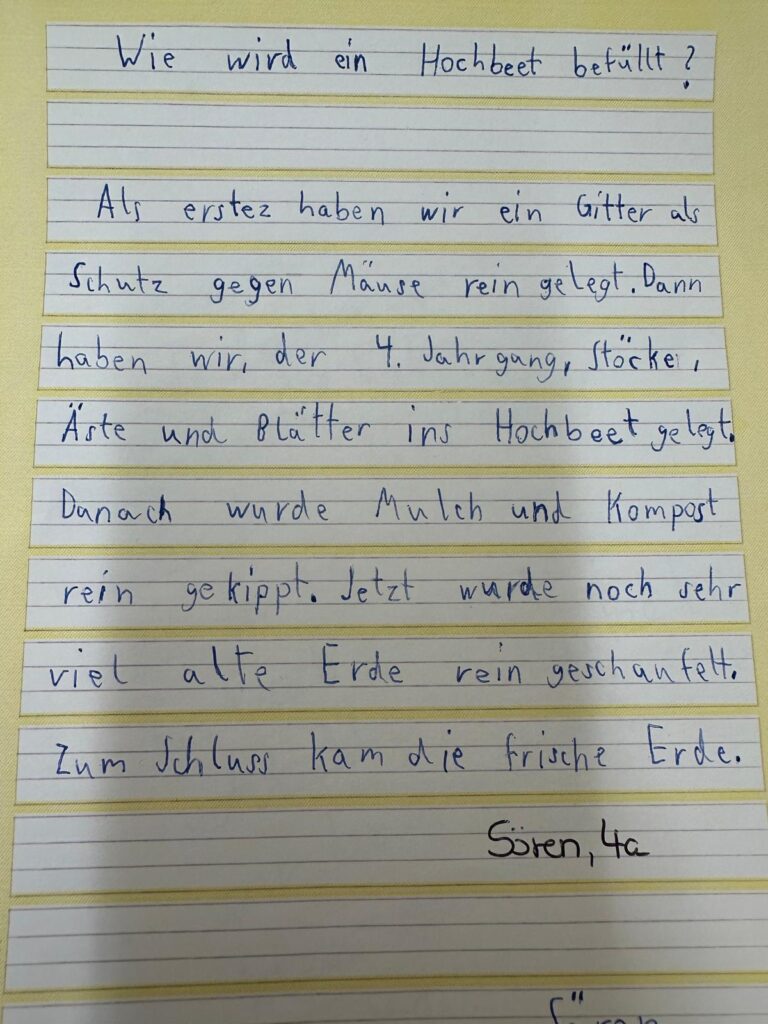 Wie wird ein Hochbeet befüllt?
Als erstez haben wir ein Gitter als
Schutz gegen Mäuse rein gelegt. Dann
haben wir, der 4. Jahrgang, Stöcke,
Äste und Blätter ins Hochbeet gelegt.
Danach wurde Mulch und Kompost
rein gekippt. Jetzt wurde noch sehr
viel alte Erde rein geschaufelt.
Zum Schluss kam die frische Erde.
Sören, 4a